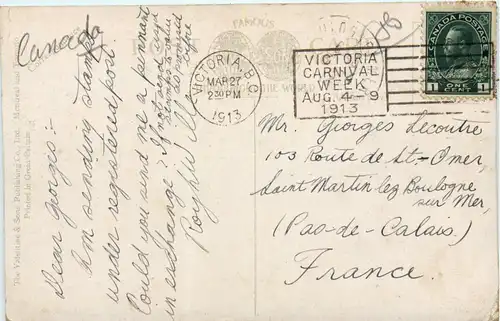 Canada
Dear Georges:-
Am sending stamps
under registered post.
Could you send me a pennant
in exchange?
FAMOUS
THE WORLD
VICTORIA, B.
MAR 27
2 30 PM
1913
VICTORIA
CARNIVAL
WEEK
AUG. 4 - 9
1913
CANADA POSTAGE
1 ONE CENT 1
Mr. Georges Lecoutre
103 Route de St-Omer
Saint Martin lez Boulogne
sur Mer
(Pas-de-Calais)
France.
The Valentine & Sons Publishing Co., Ltd., Montreal and
Printed in Great Britain.